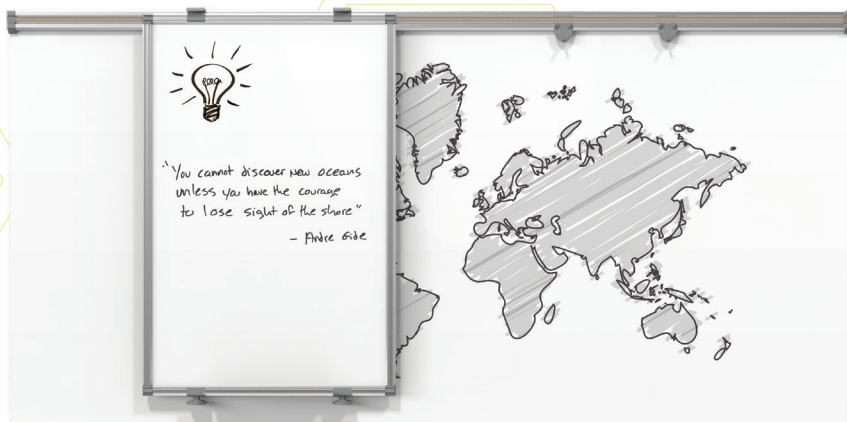 "You cannot discover new oceans
unless you have the courage
to lose sight of the shore"
- Andre Gide